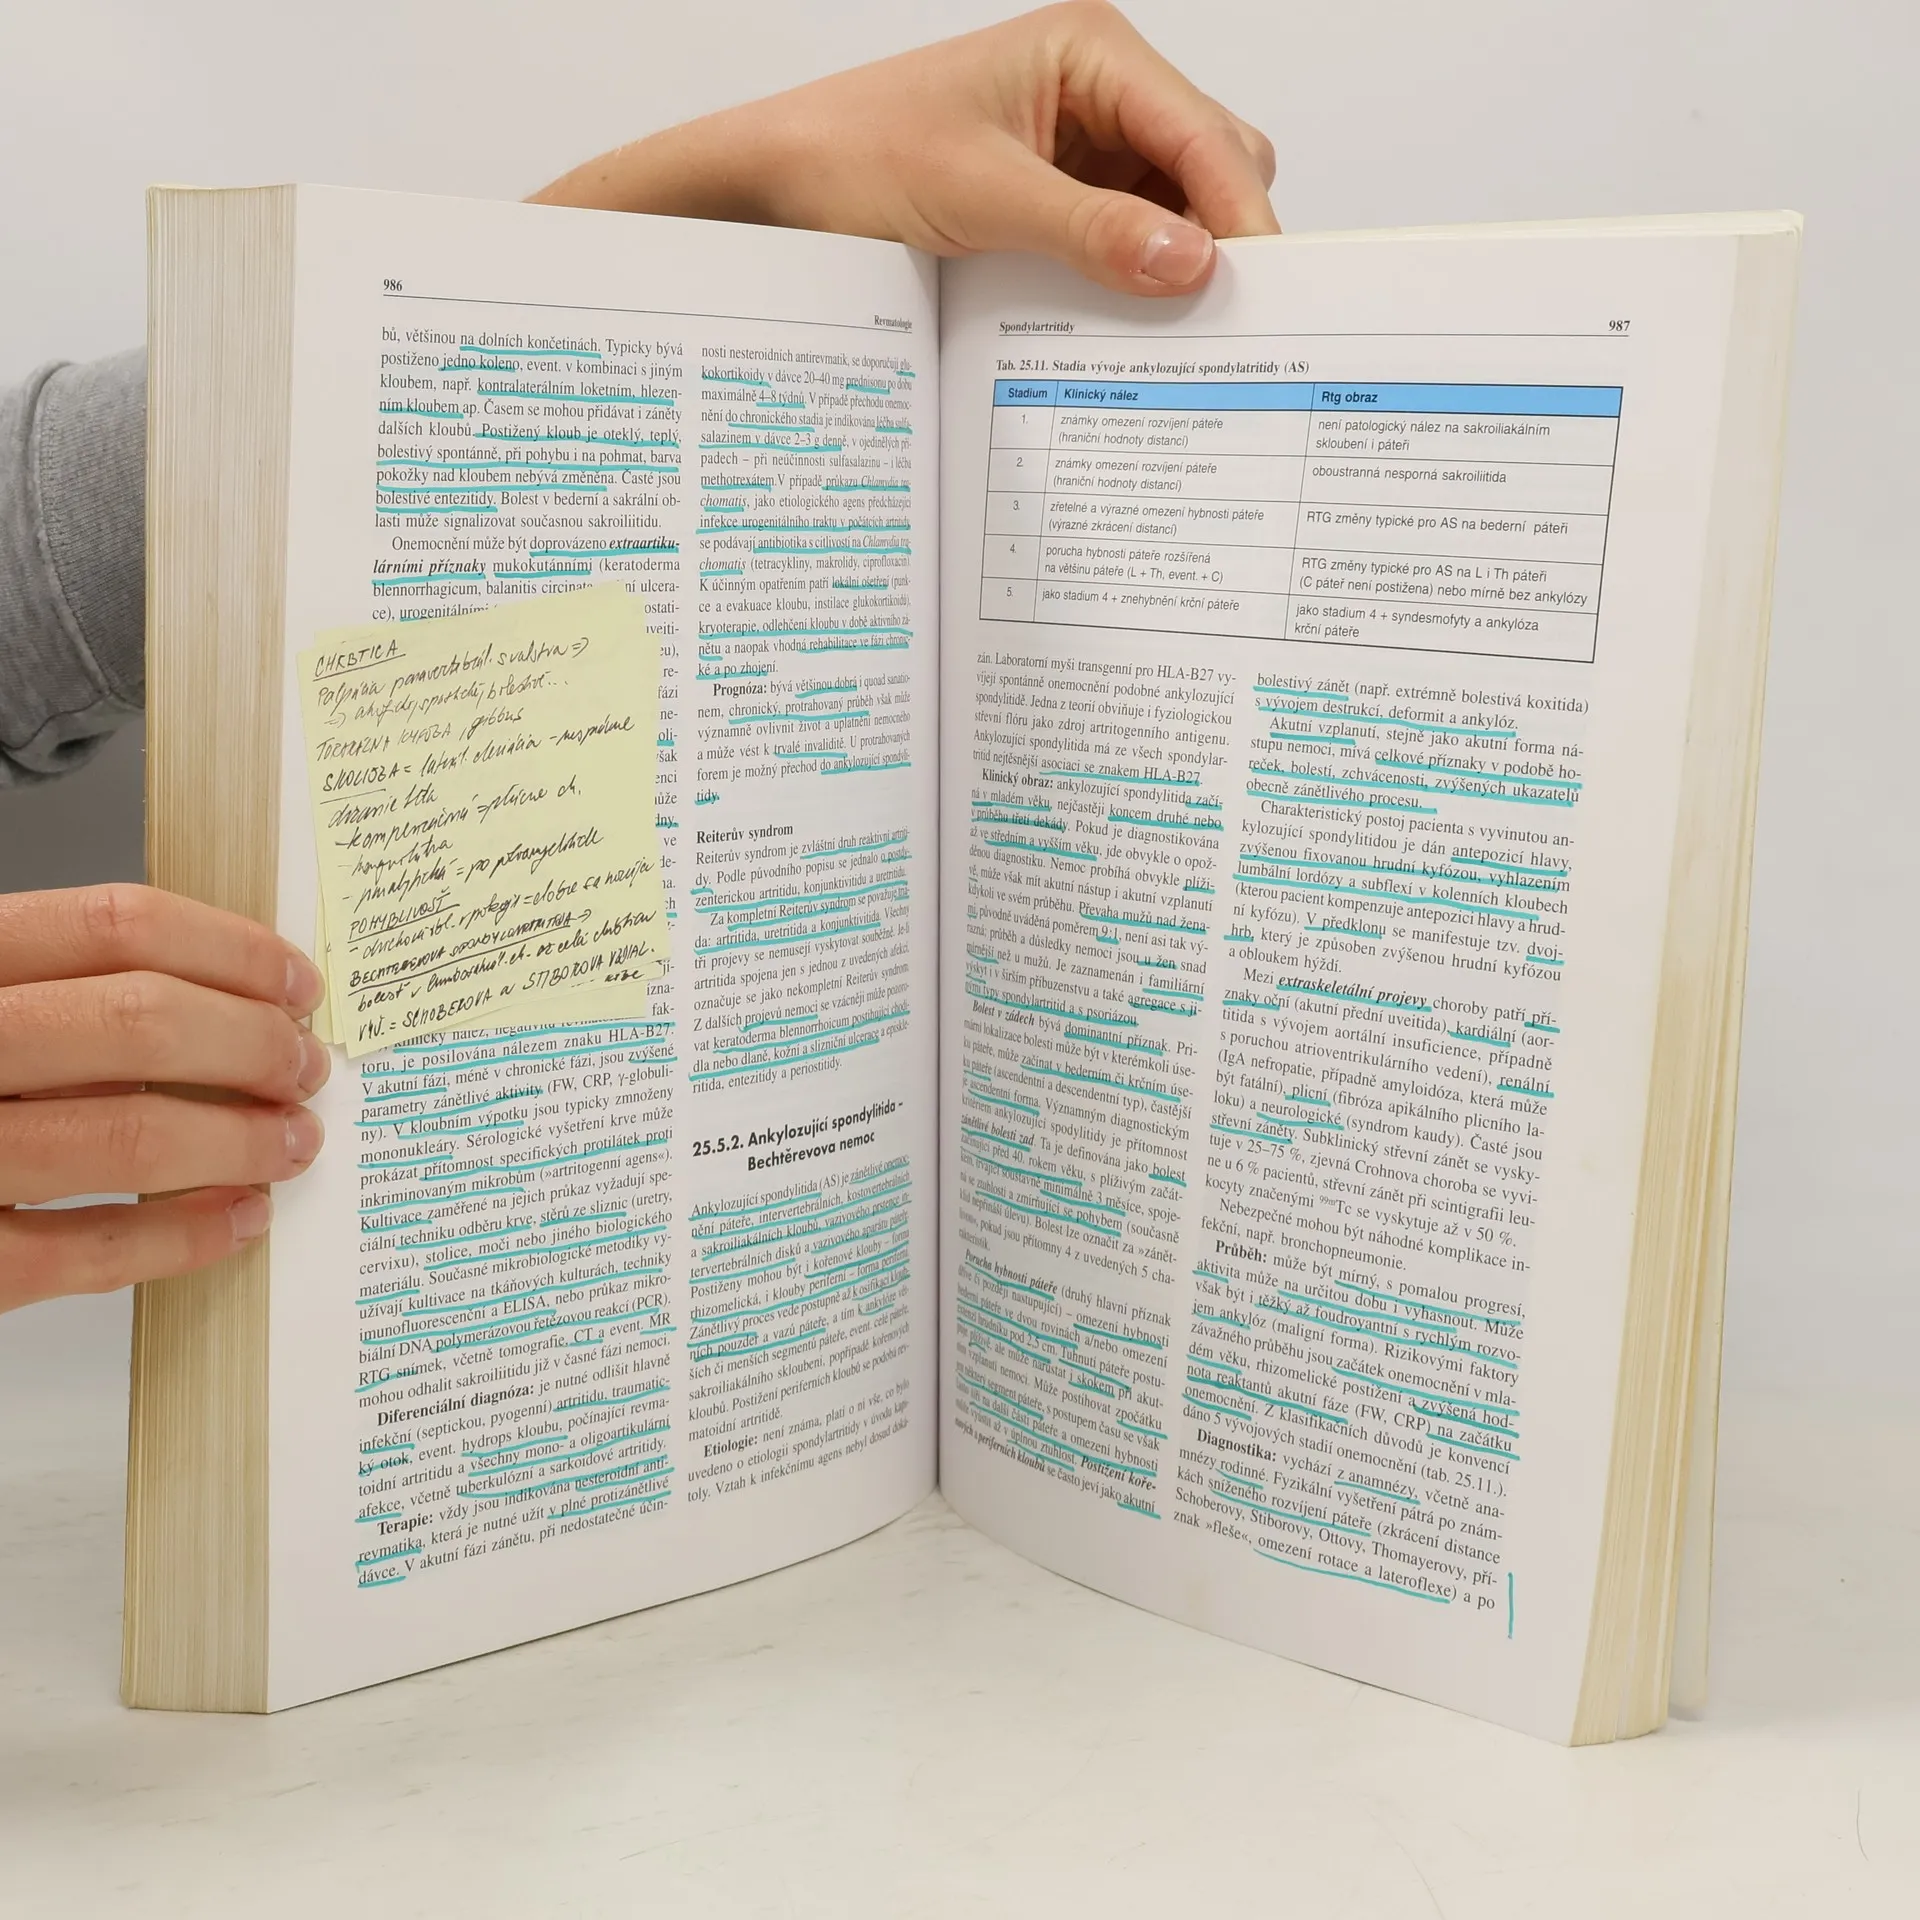 986
Revmatologie
bů, většinou na dolních končetinách. Typicky bývá
postiženo jedno koleno, event. v kombinaci s jiným
kloubem, např. kontralaterálním loketním, hlezen-
ním kloubem ap. Časem se mohou přidávat i záněty
dalších kloubů. Postižený kloub je oteklý, teplý,
bolestivý spontánně, při pohybu i na pohmat, barva
pokožky nad kloubem nebývá změněna. Časté jsou
bolestivé entezitidy. Bolest v bederní a sakrální ob-
lasti může signalizovat současnou sakroiliitidu.
Onemocnění může být doprovázeno extraartiku-
lárními příznaky mukokutánními (keratoderma
blennorrhagicum, balanitis circinata
ní ulcera-
ce), urogenitálními
CHRBTICA
Palpácia paravertebrál. svalstva =>
TORAKÁLNA KYFÓZA, gibbus
SKOLIÓZA =
držanie tela
POHYBLIVOSŤ
BECHTEREVOVA SPONDYLOARTRITÍDA =>
VYŠ. = SCHOBEROVA a STIBOROVA VZDIAL.
klinický nález, negativitu
toru, je posilována nálezem znaku HLA-B27.
V akutní fázi, méně v chronické fázi, jsou zvýšené
parametry zánětlivé aktivity (FW, CRP, γ-globuli-
ny). V kloubním výpotku jsou typicky zmnoženy
mononukleáry. Sérologické vyšetření krve může
prokázat přítomnost specifických protilátek proti
inkriminovaným mikrobům (»artritogenní agens«).
Kultivace zaměřené na jejich průkaz vyžadují spe-
ciální techniku odběru krve, stěrů ze sliznic (uretry,
cervixu), stolice, moči nebo jiného biologického
materiálu. Současné mikrobiologické metodiky vy-
užívají kultivace na tkáňových kulturách, techniky
imunofluorescenční a ELISA, nebo průkaz mikro-
biální DNA polymerázovou řetězovou reakcí (PCR).
RTG snímek, včetně tomografie, CT a event. MR
mohou odhalit sakroiliitidu již v časné fázi nemoci.
Diferenciální diagnóza: je nutné odlišit hlavně
infekční (septickou, pyogenní) artritidu, traumatic-
ký otok, event. hydrops kloubu, počínající revma-
toidní artritidu a všechny mono- a oligoartikulární
afekce, včetně tuberkulózní a sarkoidové artritidy.
Terapie: vždy jsou indikována nesteroidní anti-
revmatika, která je nutné užít v plné protizánětlivé
dávce. V akutní fázi zánětu, při nedostatečné účin-
nosti nesteroidních antirevmatik, se doporučují glu-
kokortikoidy v dávce 20–40 mg prednisonu po dobu
maximálně 4–8 týdnů. V případě přechodu onemoc-
nění do chronického stadia je indikována léčba sulfa-
salazinem v dávce 2–3 g denně, v ojedinělých pří-
padech – při neúčinnosti sulfasalazinu – i léčba
methotrexátem. V případě průkazu Chlamydia tra-
chomatis, jako etiologického agens předcházející
infekce urogenitálního traktu v počátcích artritidy
se podávají antibiotika s citlivostí na Chlamydia tra-
chomatis (tetracykliny, makrolidy, ciprofloxacin).
K účinným opatřením patří lokální ošetření (punk-
ce a evakuace kloubu, instilace glukokortikoidů),
kryoterapie, odlehčení kloubu v době aktivního zá-
nětu a naopak vhodná rehabilitace ve fázi chronic-
ké a po zhojení.
Prognóza: bývá většinou dobrá i quoad sanatio-
nem, chronický, protrahovaný průběh však může
významně ovlivnit život a uplatnění nemocného
a může vést k trvalé invaliditě. U protrahovaných
forem je možný přechod do ankylozující spondyli-
tidy.
Reiterův syndrom
Reiterův syndrom je zvláštní druh reaktivní artriti-
dy. Podle původního popisu se jednalo o postdy-
zenterickou artritidu, konjunktivitidu a uretritidu.
Za kompletní Reiterův syndrom se považuje tria-
da: artritida, uretritida a konjunktivitida. Všechny
tři projevy se nemusejí vyskytovat souběžně. Je-li
artritida spojena jen s jednou z uvedených afekcí,
označuje se jako nekompletní Reiterův syndrom
Z dalších projevů nemoci se vzácněji může pozoro-
vat keratoderma blennorrhoicum postihující chodi-
dla nebo dlaně, kožní a slizniční ulcerace a episkle-
ritida, entezitidy a periostitidy.
25.5.2. Ankylozující spondylitida –
Bechtěrevova nemoc
Ankylozující spondylitida (AS) je zánětlivé onemoc-
nění páteře, intervertebrálních, kostovertebrálních
a sakroiliakálních kloubů, vazivového prstence in-
tervertebrálních disků a vazivového aparátu páteře.
Postiženy mohou být i kořenové klouby – forma
rhizomelická, i klouby periferní – forma periferní.
Zánětlivý proces vede postupně až k osifikaci kloub-
ních pouzder a vazů páteře, a tím k ankylóze vět-
ších či menších segmentů páteře, event. celé páteře,
sakroiliakálního skloubení, popřípadě kořenových
kloubů. Postižení periferních kloubů se podobá rev-
matoidní artritidě.
Etiologie: není známa, platí o ní vše, co bylo
uvedeno o etiologii spondylartritidy v úvodu kapi-
toly. Vztah k infekčnímu agens nebyl dosud doká-
Spondylartritidy
987
Tab. 25.11. Stadia vývoje ankylozující spondylatritidy (AS)
Stadium Klinický nález Rtg obraz
1. známky omezení rozvíjení páteře (hraniční hodnoty distancí) není patologický nález na sakroiliakálním skloubení i páteři
2. známky omezení rozvíjení páteře (hraniční hodnoty distancí) oboustranná nesporná sakroiliitida
3. zřetelné a výrazné omezení hybnosti páteře (výrazné zkrácení distancí) RTG změny typické pro AS na bederní páteři
4. porucha hybnosti páteře rozšířená na většinu páteře (L + Th, event. + C) RTG změny typické pro AS na L i Th páteři (C páteř není postižena) nebo mírně bez ankylózy
5. jako stadium 4 + znehybnění krční páteře jako stadium 4 + syndesmofyty a ankylóza krční páteře
zán. Laboratorní myši transgenní pro HLA-B27 vy-
víjejí spontánně onemocnění podobné ankylozující
spondylitidě. Jedna z teorií obviňuje i fyziologickou
střevní flóru jako zdroj artritogenního antigenu.
Ankylozující spondylitida má ze všech spondylar-
tritid nejtěsnější asociaci se znakem HLA-B27.
Klinický obraz: ankylozující spondylitida začí-
ná v mladém věku, nejčastěji koncem druhé nebo
v průběhu třetí dekády. Pokud je diagnostikována
až ve středním a vyšším věku, jde obvykle o opož-
děnou diagnostiku. Nemoc probíhá obvykle plíži-
vě, může však mít akutní nástup i akutní vzplanutí
kdykoli ve svém průběhu. Převaha mužů nad žena-
mi, původně uváděná poměrem 9:1, není asi tak vý-
razná; průběh a důsledky nemoci jsou u žen snad
mírnější než u mužů. Je zaznamenán i familiární
výskyt i v širším příbuzenstvu a také agregace s ji-
nými typy spondylartritid a s psoriázou.
Bolest v zádech bývá dominantní příznak. Pri-
mární lokalizace bolesti může být v kterémkoli úse-
ku páteře, může začínat v bederním či krčním úse-
ku páteře (ascendentní a descendentní typ), častější
je ascendentní forma. Významným diagnostickým
kritériem ankylozující spodylitidy je přítomnost
zánětlivé bolesti zad. Ta je definována jako bolest
začínající před 40. rokem věku, s plíživým začát-
kem, trvající soustavně minimálně 3 měsíce, spoje-
ná se ztuhlostí a zmírňující se pohybem (současně
klid nepřináší úlevu). Bolest lze označit za »zánět-
livou«, pokud jsou přítomny 4 z uvedených 5 cha-
rakteristik.
Porucha hybnosti páteře (druhý hlavní příznak
dříve či později nastupující) – omezení hybnosti
bederní páteře ve dvou rovinách a/nebo omezení
exkurzí hrudníku pod 2,5 cm. Tuhnutí páteře postu-
puje plíživě, ale může narůstat i skokem při akut-
ním vzplanutí nemoci. Může postihovat zpočátku
jen některý segment páteře, s postupem času se však
často šíří na další části páteře a omezení hybnosti
může vyústit až v úplnou ztuhlost. Postižení koře-
nových a periferních kloubů se často jeví jako akutní
bolestivý zánět (např. extrémně bolestivá koxitida)
s vývojem destrukcí, deformit a ankylóz.
Akutní vzplanutí, stejně jako akutní forma ná-
stupu nemoci, mívá celkové příznaky v podobě ho-
reček, bolestí, zchvácenosti, zvýšených ukazatelů
obecně zánětlivého procesu.
Charakteristický postoj pacienta s vyvinutou an-
kylozující spondylitidou je dán antepozicí hlavy,
zvýšenou fixovanou hrudní kyfózou, vyhlazením
lumbální lordózy a subflexí v kolenních kloubech
(kterou pacient kompenzuje antepozici hlavy a hrud-
ní kyfózu). V předklonu se manifestuje tzv. dvoj-
hrb, který je způsoben zvýšenou hrudní kyfózou
a obloukem hýždí.
Mezi extraskeletální projevy choroby patří pří-
znaky oční (akutní přední uveitida), kardiální (aor-
titida s vývojem aortální insuficience, případně
s poruchou atrioventrikulárního vedení), renální
(IgA nefropatie, případně amyloidóza, která může
být fatální), plicní (fibróza apikálního plicního la-
loku) a neurologické (syndrom kaudy). Časté jsou
střevní záněty. Subklinický střevní zánět se vysky-
tuje v 25–75 %, zjevná Crohnova choroba se vyvi-
ne u 6 % pacientů, střevní zánět při scintigrafii leu-
kocyty značenými ⁹⁹ᵐTc se vyskytuje až v 50 %.
Nebezpečné mohou být náhodné komplikace in-
fekční, např. bronchopneumonie.
Průběh: může být mírný, s pomalou progresí,
aktivita může na určitou dobu i vyhasnout. Může
však být i těžký až foudroyantní s rychlým rozvo-
jem ankylóz (maligní forma). Rizikovými faktory
závažného průběhu jsou začátek onemocnění v mla-
dém věku, rhizomelické postižení a zvýšená hod-
nota reaktantů akutní fáze (FW, CRP) na začátku
onemocnění. Z klasifikačních důvodů je konvencí
dáno 5 vývojových stadií onemocnění (tab. 25.11.).
Diagnostika: vychází z anamnézy, včetně ana-
mnézy rodinné. Fyzikální vyšetření pátrá po znám-
kách sníženého rozvíjení páteře (zkrácení distance
Schoberovy, Stiborovy, Ottovy, Thomayerovy, pří-
znak »fleše«, omezení rotace a lateroflexe) a po